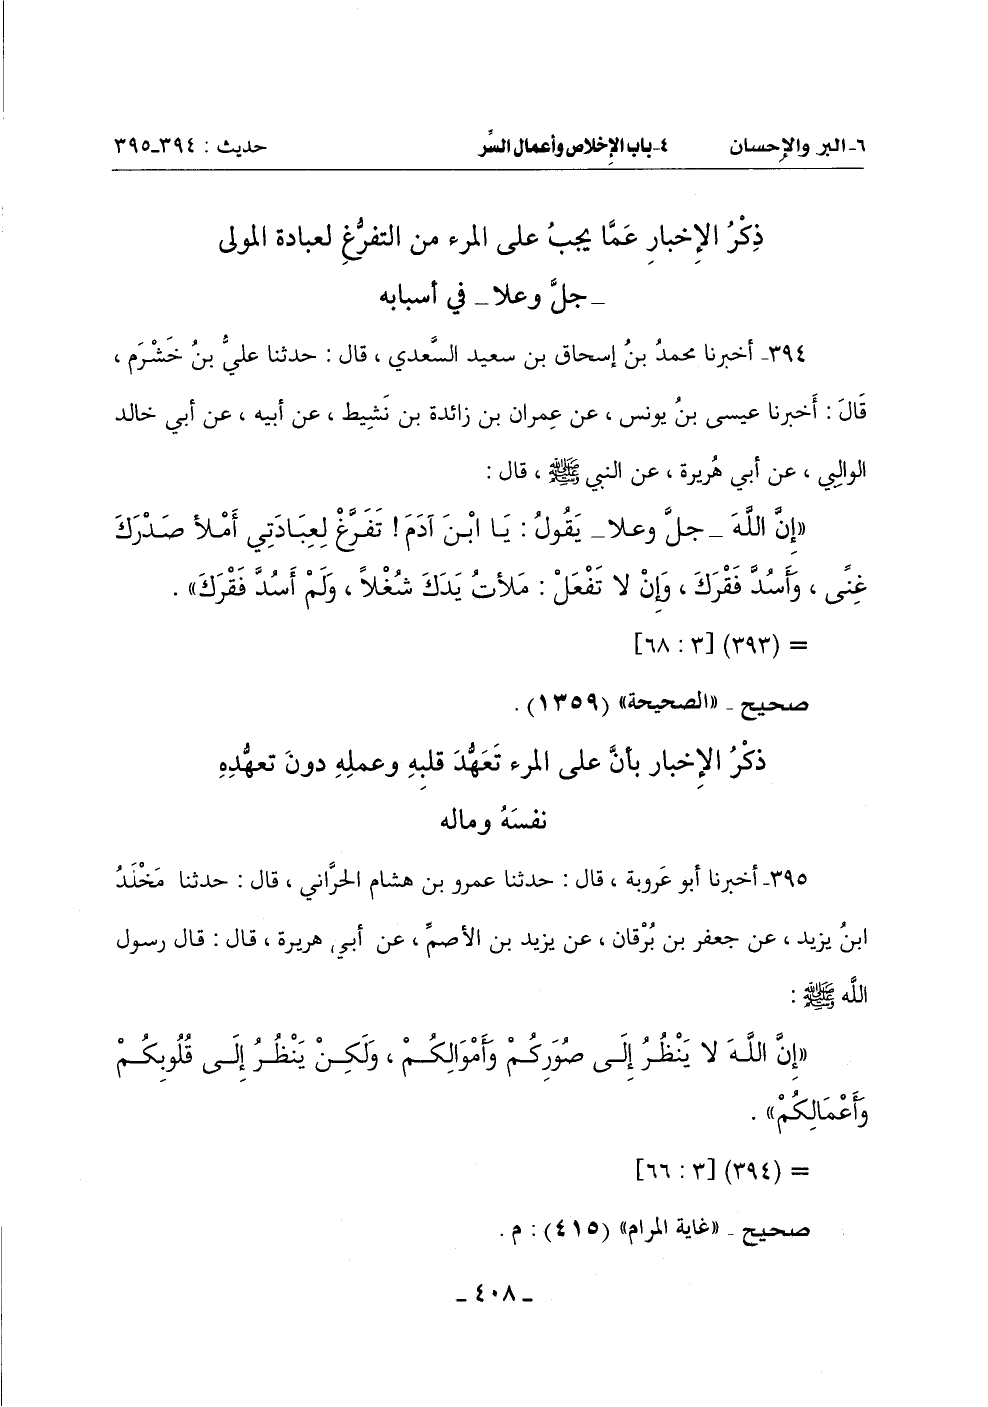 ٦- البر والإحسان ٤- باب الإخلاص وأعمال السِّر حديث : ٣٩٤ـ٣٩٥
ذِكْرُ الإخبارِ عَمَّا يجبُ على المرء من التفرُّغِ لعبادة المولى
ـ جلَّ وعلا ـ في أسبابه
٣٩٤ـ أخبرنا محمدُ بنُ إسحاق بن سعيد السَّعدي ، قال : حدثنا عليُّ بنُ خَشْرَم ،
قَالَ : أَخبرنا عيسى بنُ يونس ، عن عِمران بن زائدة بن نَشِيط ، عن أبيه ، عن أبي خالد
الوالِبي ، عن أبي هُريرة ، عن النبي ﷺ ، قال :
«إنَّ اللَّهَ ـ جلَّ وعلا ـ يَقُولُ : يَا ابْنَ آدَمَ ! تَفَرَّغْ لِعِبَادَتِي أَمْلأ صَدْرَكَ
غِنًى ، وَأَسُدَّ فَقْرَكَ ، وَإنْ لا تَفْعَلْ : مَلأتُ يَدَكَ شُغْلاً ، وَلَمْ أَسُدَّ فَقْرَكَ» .
= (٣٩٣) [٣ : ٦٨]
صحيح ـ «الصحيحة» (١٣٥٩) .
ذكْرُ الإخبار بأنَّ على المرء تَعَهُّدَ قلبِهِ وعملِهِ دونَ تعهُّدِهِ
نفسَهُ وماله
٣٩٥ـ أخبرنا أبو عَروبة ، قال : حدثنا عمرو بن هشام الحرَّاني ، قال : حدثنا مَخْلَدُ
ابنُ يزيد ، عن جعفر بن بُرْقان ، عن يزيد بن الأصمِّ ، عن أبي هريرة ، قال : قال رسول
اللَّه ﷺ :
«إنَّ اللَّهَ لا يَنْظُرُ إلَى صُوَرِكُمْ وَأَمْوَالِكُمْ ، وَلَكِنْ يَنْظُرُ إلَى قُلُوبِكُمْ
وَأَعْمَالِكُمْ» .
= (٣٩٤) [٣ : ٦٦]
صحيح ـ «غاية المرام» (٤١٥) : م .
ـ ٤٠٨ ـ